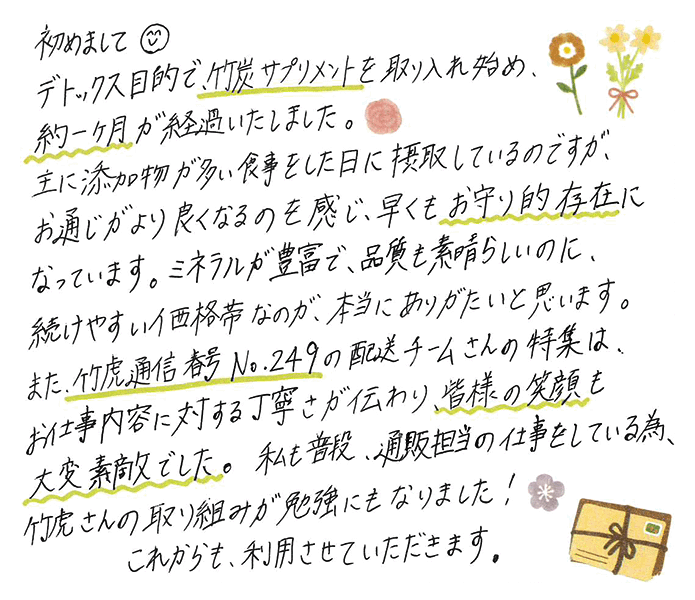 初めまして
デトックス目的で、竹炭サプリメントを取り入れ始め、
約一ヶ月が経過いたしました。
主に添加物が多い食事をした日に摂取しているのですが、
お通じがより良くなるのを感じ、早くもお守り的存在に
なっています。ミネラルが豊富で、品質も素晴らしいのに、
続けやすい価格帯なのが、本当にありがたいと思います。
また、竹虎通信春号No.249の配送チームさんの特集は、
お仕事内容に対する丁寧さが伝わり、皆様の笑顔も
大変素敵でした。私も普段、通販担当の仕事をしている為、
竹虎さんの取り組みが勉強にもなりました!
これからも、利用させていただきます。